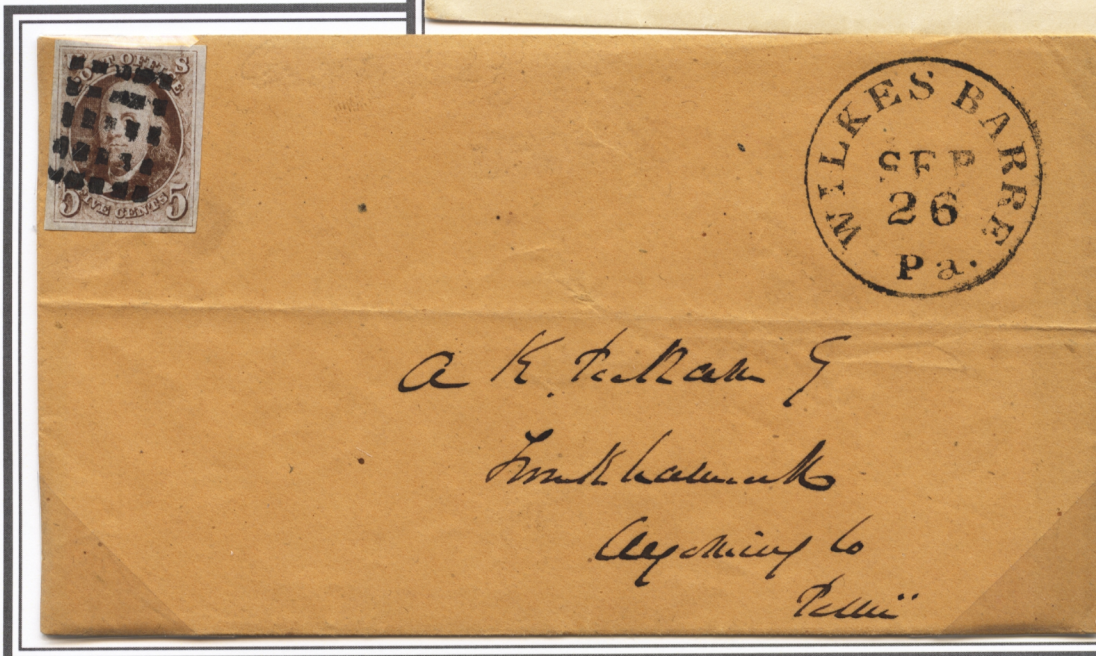 POST OFFICE S
5 FIVE CENTS 5
WILKES BARRE
SEP
26
Pa.
A K Peckham
Tunkhannock
Wyoming Co